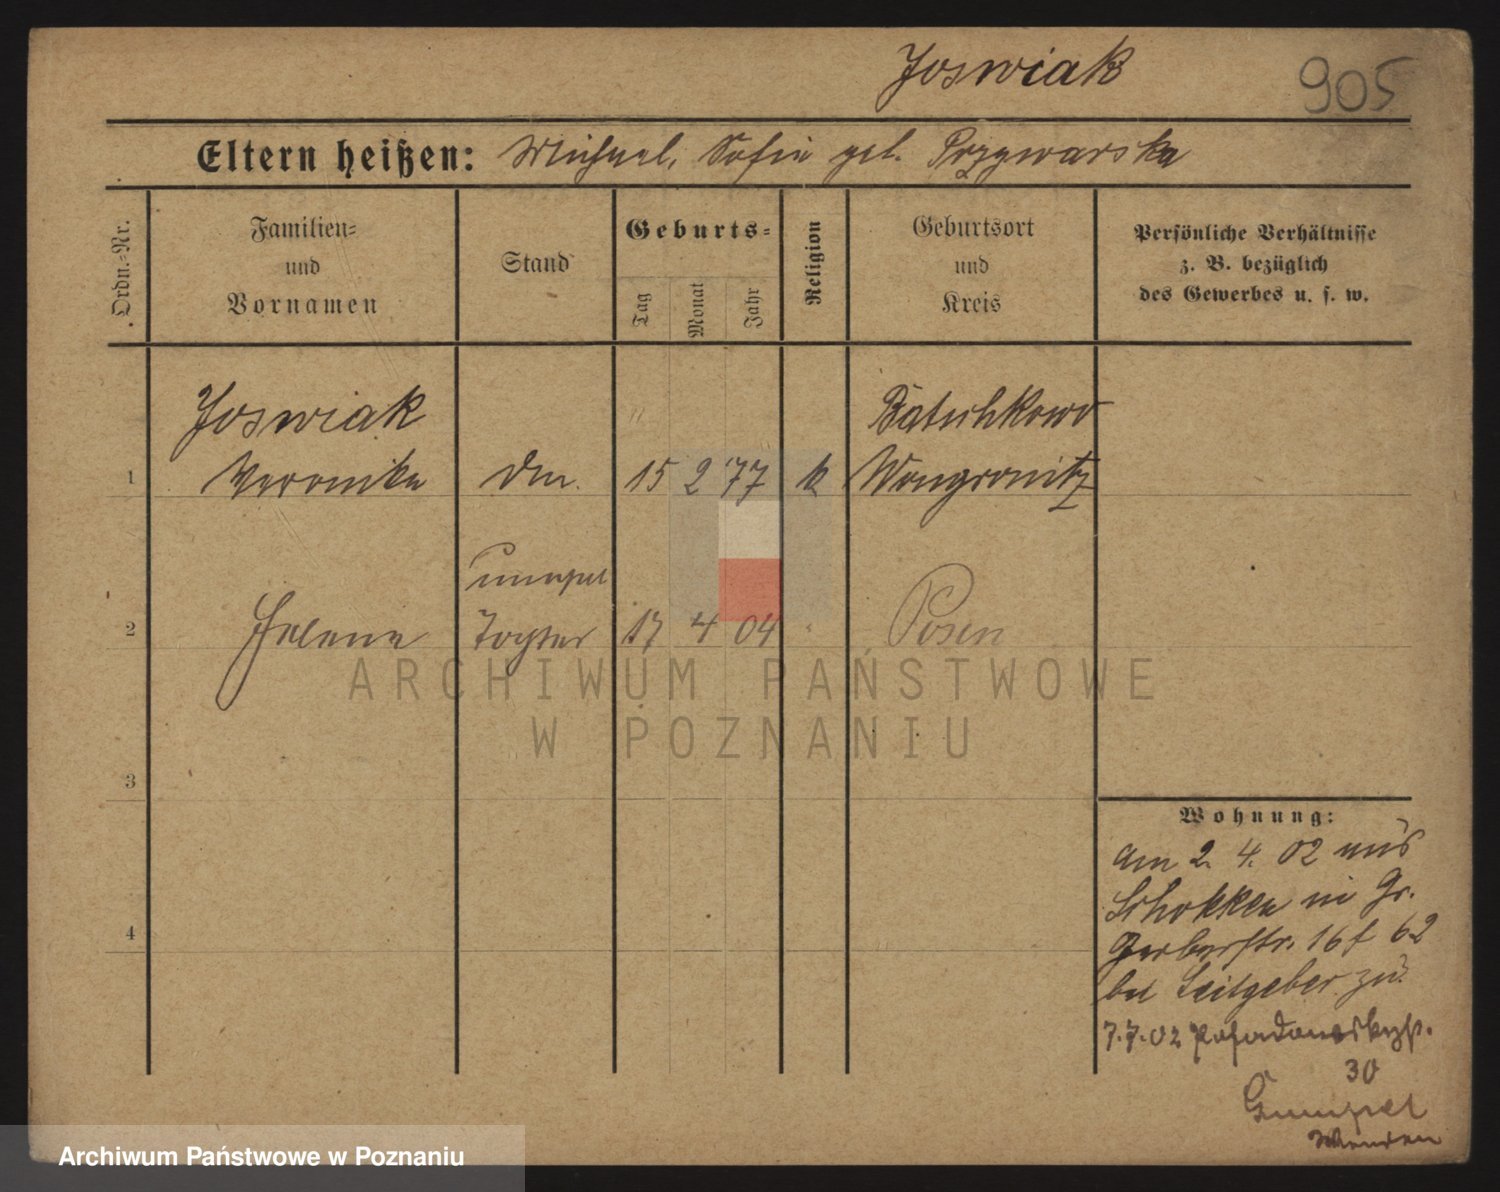 Joswiak
905
Eltern heißen: Michael, Sofie geb. Przywarska
Ordn.-Nr.
Familien- und Vornamen
Stand
Geburts-
Tag
Monat
Jahr
Religion
Geburtsort und Kreis
Persönliche Verhältnisse z. B. bezüglich des Gewerbes u. s. w.
Joswiak
1 Veronika
15 2 77 k
Wongrowitz
unehel
2 Helene Tochter 17 4 04 Posen
3
4
Wohnung:
am 2. 4. 02 aus
Schokken in Gr.
Gerberstr. 16 62
bei Leitgeber zu.
7.7.02
30
Wenden
ARCHIWUM PAŃSTWOWE
W POZNANIU
Archiwum Państwowe w Poznaniu